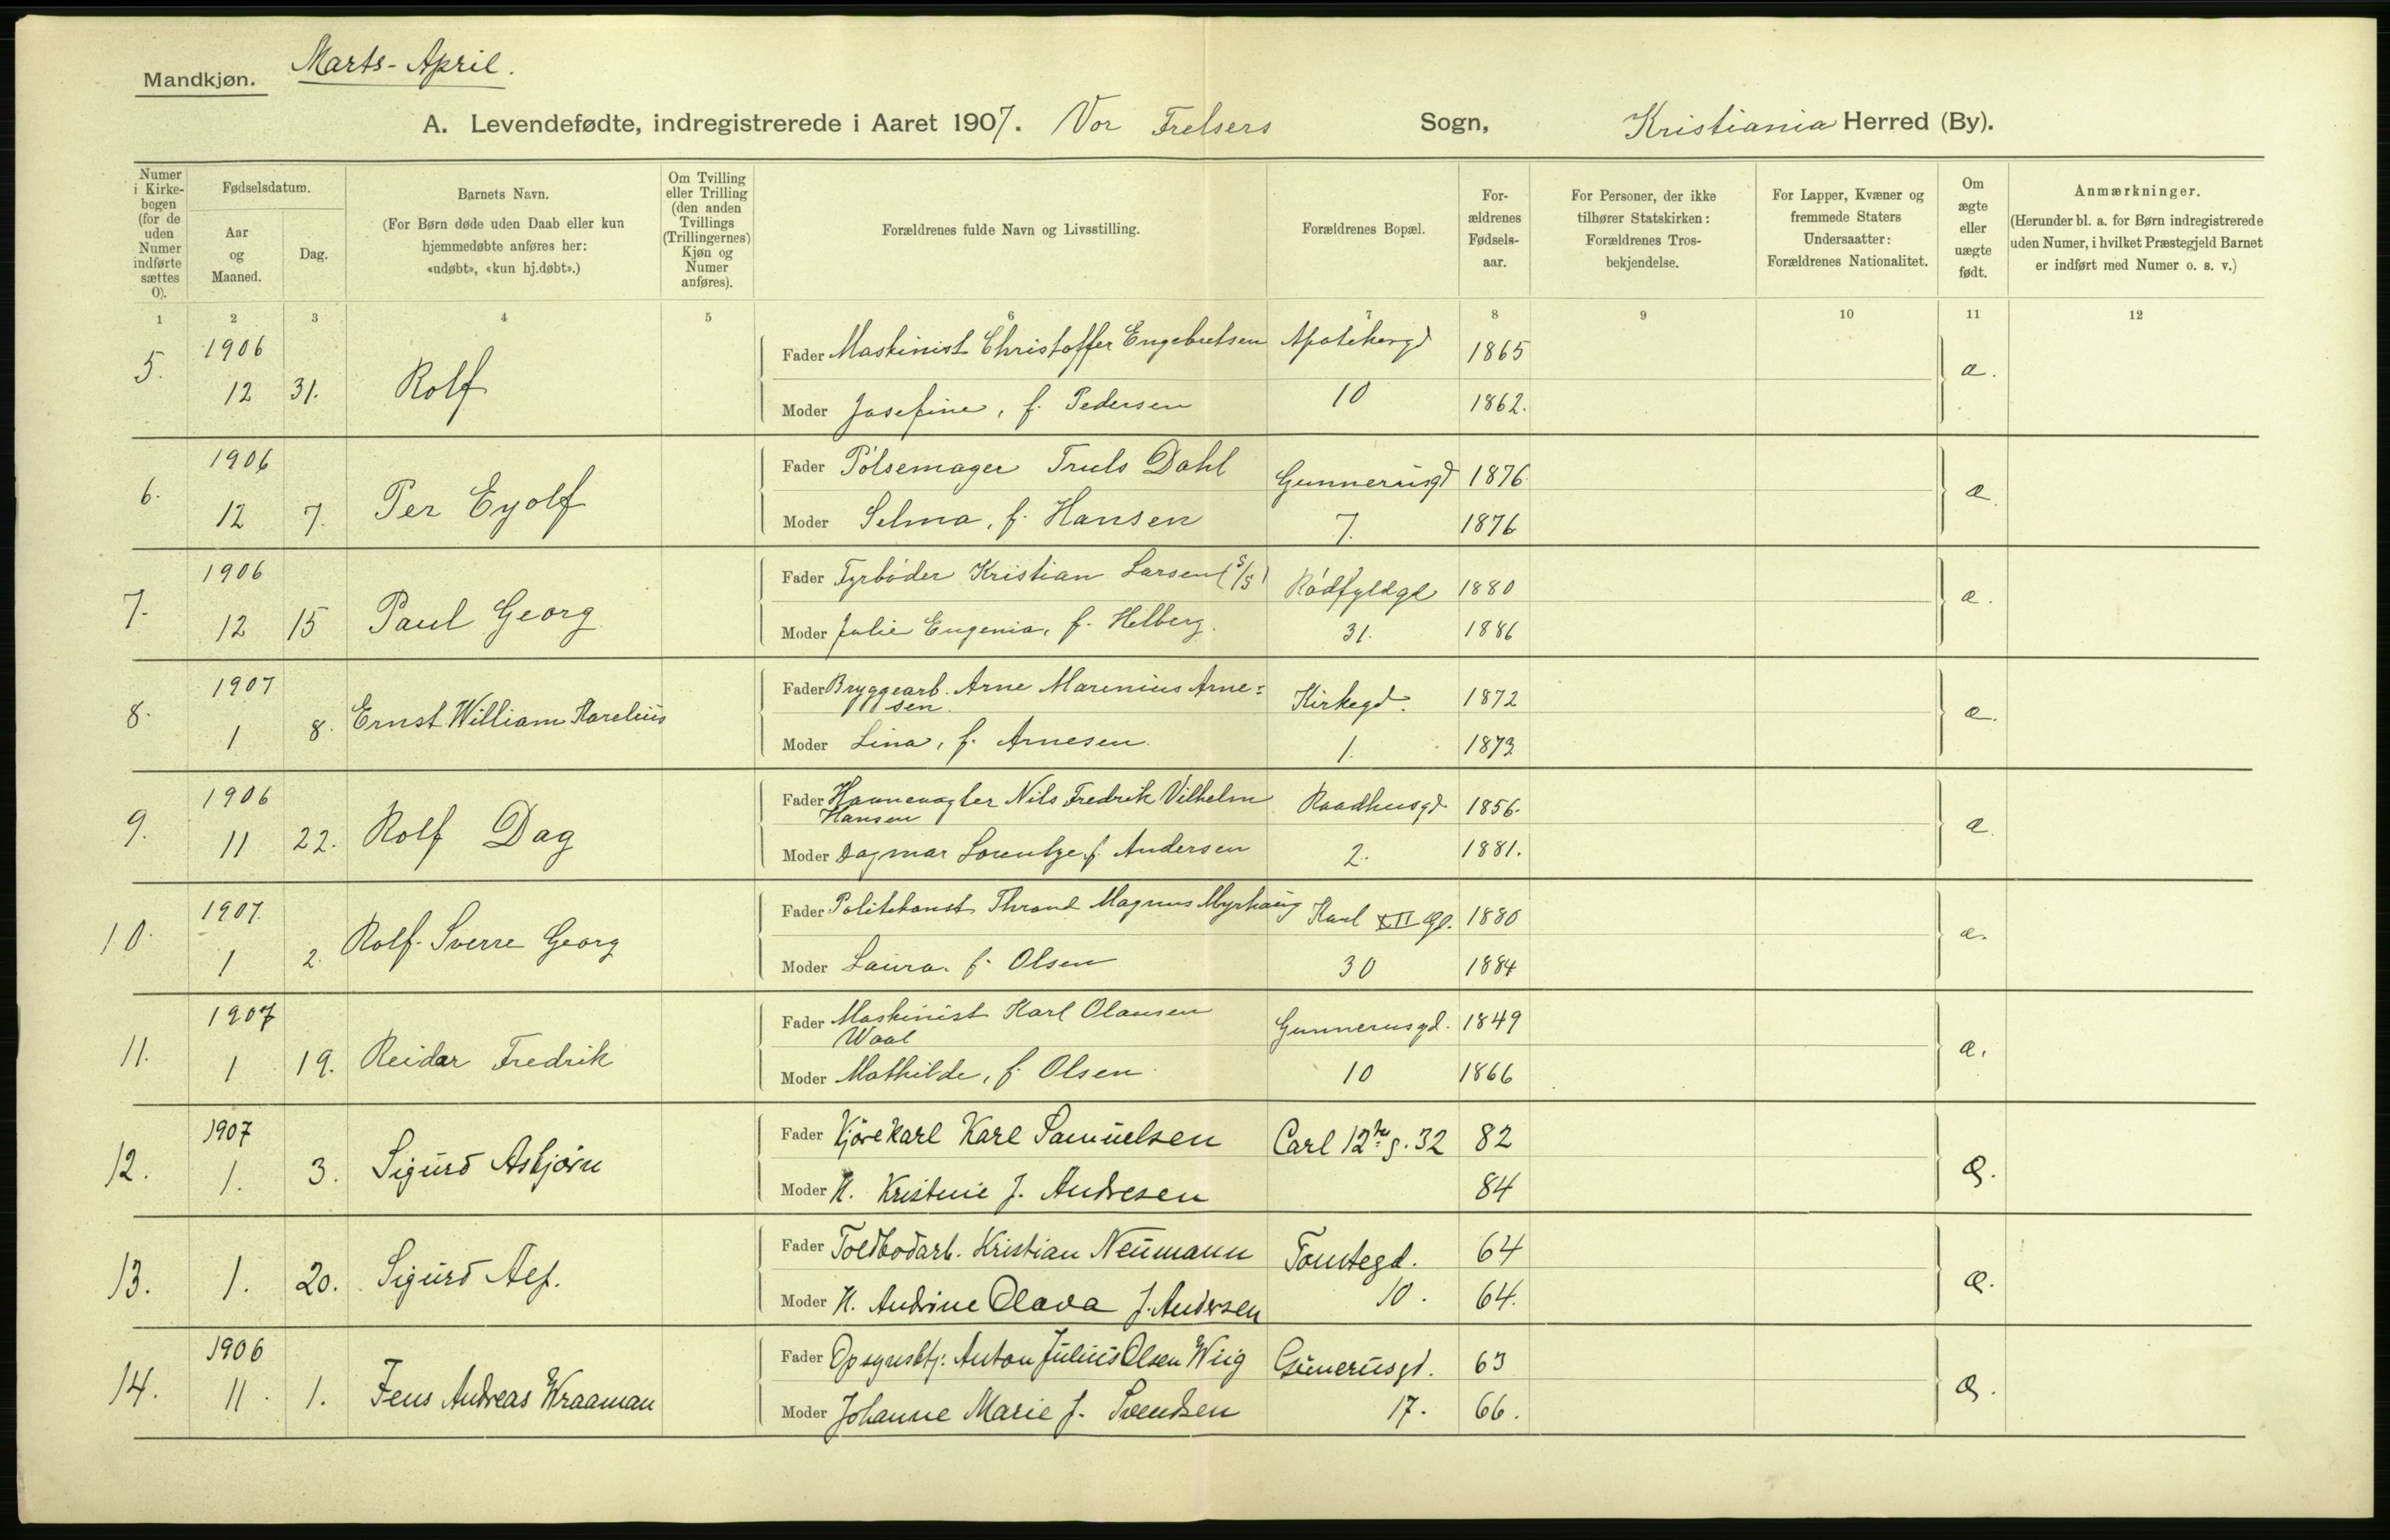 Mandkjøn. Marts-April.
A. Levendefødte, indregistrerede i Aaret 1907. Vor Frelsers Sogn, Kristiania Herred (By).
Numer i Kirke-bogen (for de uden Numer indførte sættes 0).
Fødselsdatum.
Aar og Maaned.
Dag.
Barnets Navn.
(For Børn døde uden Daab eller kun
hjemmedøbte anføres her:
«udøbt», «kun hj.døbt».)
Om Tvilling
eller Trilling
(den anden
Tvillings
(Trillingernes)
Kjøn og
Numer
anføres).
Forældrenes fulde Navn og Livsstilling.
Forældrenes Bopæl.
For-
ældrenes
Fødsels-
aar.
For Personer, der ikke
tilhører Statskirken:
Forældrenes Tros-
bekjendelse.
For Lapper, Kvæner og
fremmede Staters
Undersaatter:
Forældrenes Nationalitet.
Om
ægte
eller
uægte
født.
Anmærkninger.
(Herunder bl. a. for Børn indregistrerede
uden Numer, i hvilket Præstegjeld Barnet
er indført med Numer o. s. v.)
1 2 3 4 5 6 7 8 9 10 11 12
1906 Fader Maskinist Christoffer Engebretsen Apothekergd 1865
5. 12 31. Rolf æ.
Moder Josefine, f. Pedersen 10 1862.
1906 Fader Pølsemager Truls Dahl Gunnerusgd 1876.
6. 12 7. Per Eyolf æ
Moder Selma, f. Hansen 7. 1876
1906 Fader Fyrbøder Kristian Larsen (S/S) Rødfyldgd 1880
7. 12 15 Paul Georg æ.
Moder Julie Eugenia, f. Helberg. 31. 1886
1907 Fader Bryggearb. Arne Marenius Arne=
sen. Kirkegd. 1872
8. 1 8. Ernst William Karelius æ.
Moder Lina, f. Arnesen. 1. 1873
1906 Fader Havnevagter Nils Fredrik Vilhelm
Hansen Raadhusgd 1856.
9. 11 22. Rolf Dag æ.
Moder Dagmar Lorentze f. Andersen 2. 1881.
1907. Fader Politikonst. Thrond Magnus Myrhaug Karl XII Gd. 1880
10. 1 2. Rolf Sverre Georg æ.
Moder Laura. f. Olsen 30 1884
1907 Fader Maskinist Karl Olausen
Waal Gunnerusgd. 1849
11. 1 19. Reidar Fredrik æ.
Moder Mathilde, f. Olsen. 10 1866
1907 Fader Kjørekarl Karl Samuelsen Carl 12te g. 32 82
12. 1. 3. Sigurd Asbjørn æ.
Moder H. Kristine f. Andresen 84
Fader Toldbodarb. Kristian Neumann Tomtegd. 64
13. 1. 20. Sigurd Alf. æ.
Moder H. Andrine Olava f. Andersen 10. 64.
1906 Fader Opsynsbtj. Anton Julius Olsen Wiig Gunerusgd. 63
14. 11. 1. Jens Andreas Wraaman æ.
Moder Johanne Marie f. Svendsen 17. 66.